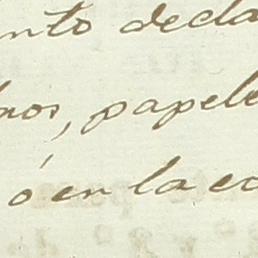 ento decla
nos, papele
ó en la ec